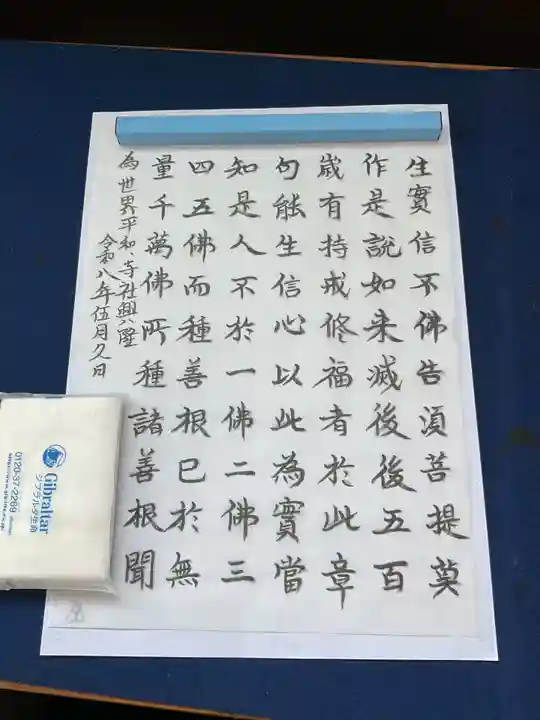 生實信不佛告須菩提莫
作是説如来滅後後五百
歳有持戒修福者於此章
句能生信心以此為實當
知是人不於一佛二佛三
四五佛而種善根已於無
量千萬佛所種諸善根聞
為世界平和、寺社興隆
令和八年伍月久日
Gibraltar
ジブラルタ生命
0120-37-2269